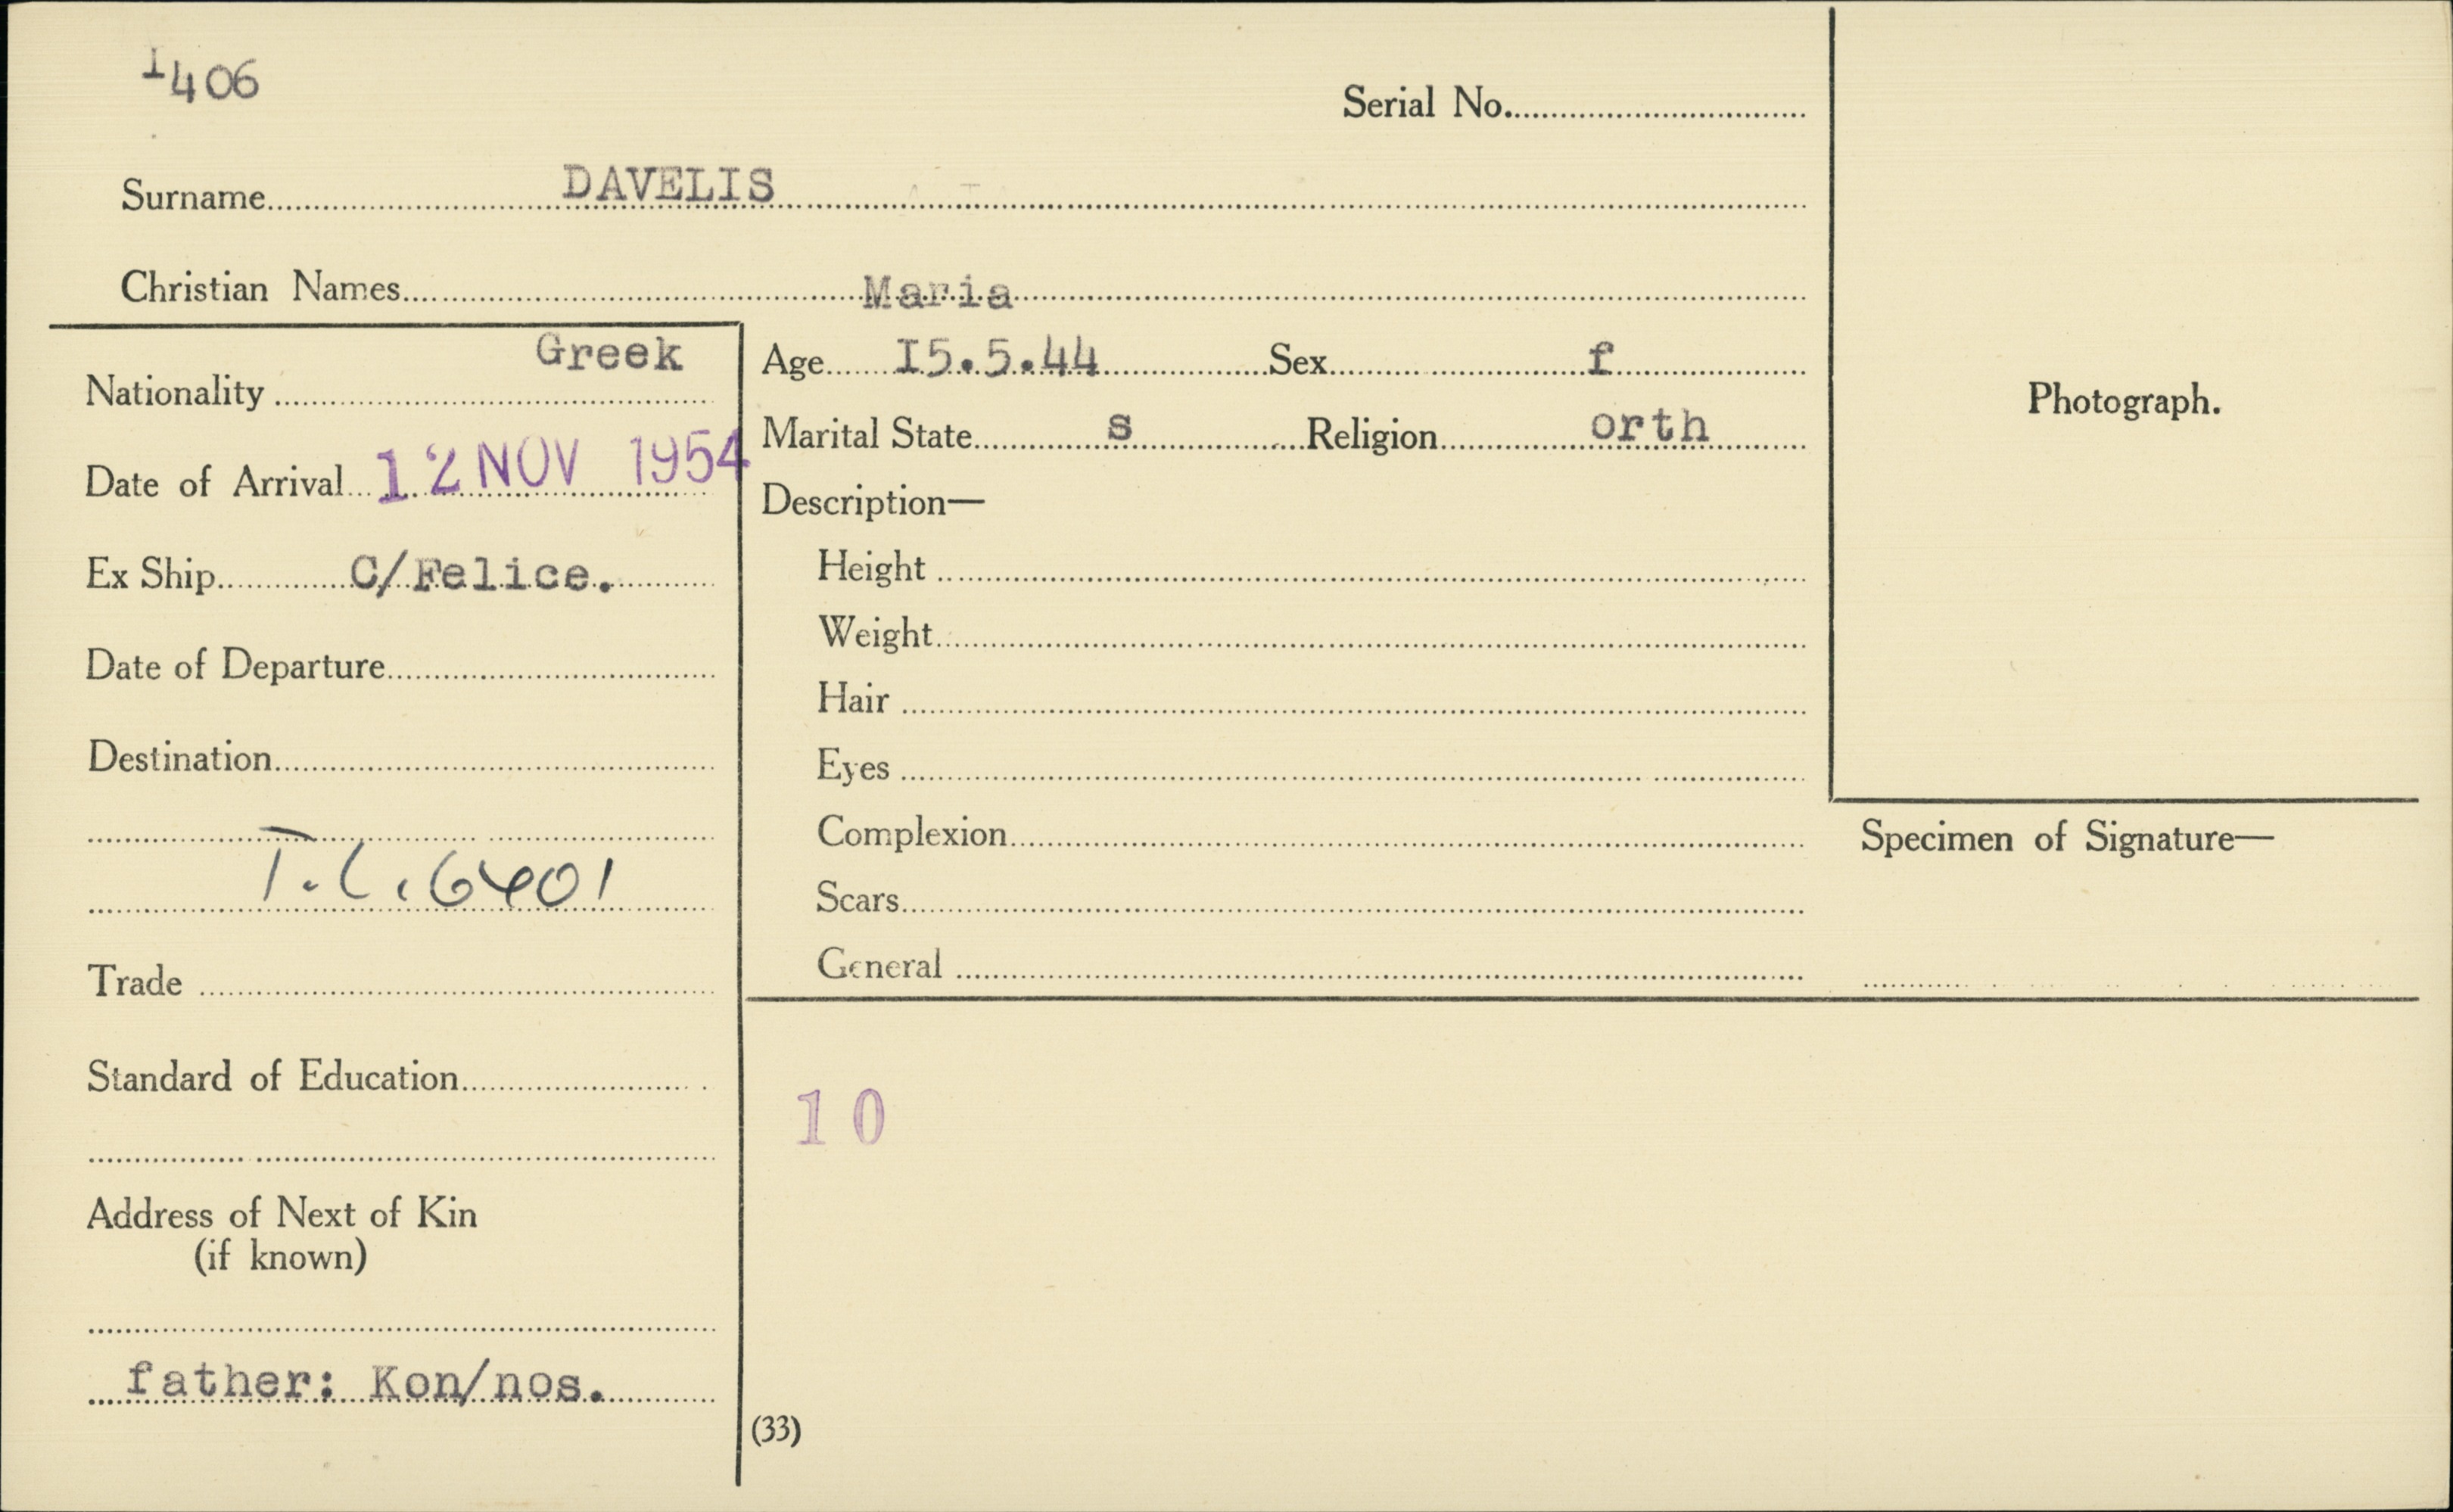 1406
Serial No.
Surname DAVELIS
Christian Names Maria
Nationality Greek
Date of Arrival 12 NOV 1954
Ex Ship C/Felice.
Date of Departure
Destination
T.L.6401
Trade
Standard of Education
Address of Next of Kin
(if known)
father: Kon/nos.
Age I5.5.44 Sex f
Marital State s Religion orth
Description—
Height
Weight
Hair
Eyes
Complexion
Scars
General
10
(33)
Photograph.
Specimen of Signature—